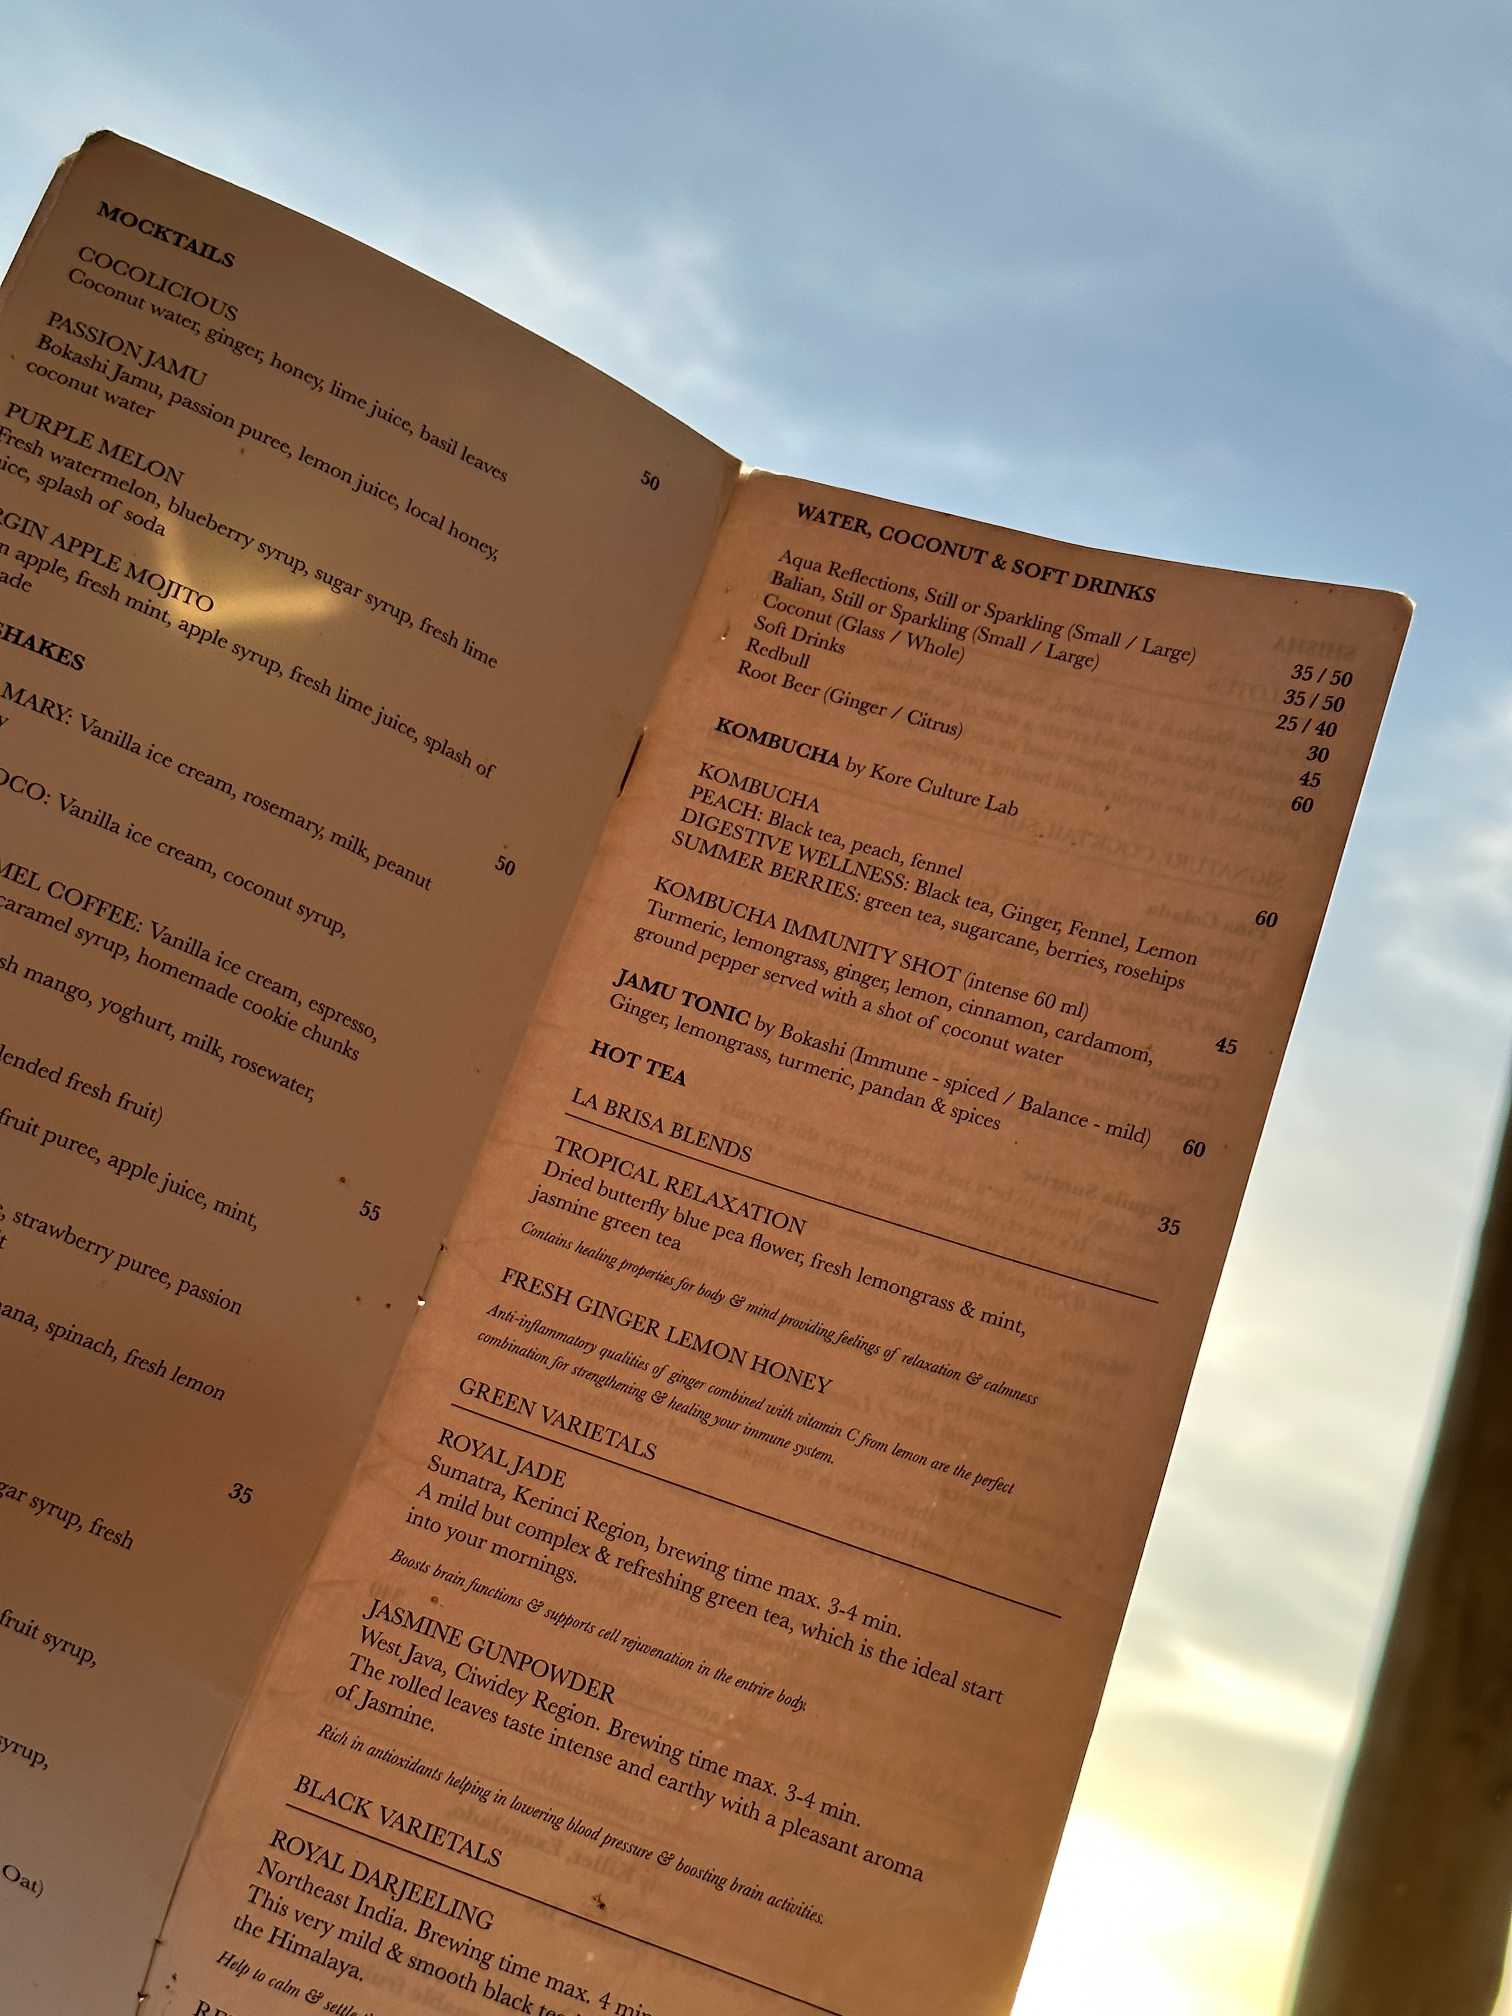 MOCKTAILS
50
COCOLICIOUS
Coconut water, ginger, honey, lime juice, basil leaves
PASSION JAMU
Bokashi Jamu, passion puree, lemon juice, local honey,
coconut water
PURPLE MELON
Fresh watermelon, blueberry syrup, sugar syrup, fresh lime
splash of soda
APPLE MOJITO
apple, fresh mint, apple syrup, fresh lime juice, splash of
50
MARY: Vanilla ice cream, rosemary, milk, peanut
Vanilla ice cream, coconut syrup,
COFFEE: Vanilla ice cream, espresso,
caramel syrup, homemade cookie chunks
mango, yoghurt, milk, rosewater,
fresh fruit)
55
fruit puree, apple juice, mint,
strawberry puree, passion
spinach, fresh lemon
35
syrup, fresh
fruit syrup,
syrup,
Oat)
WATER, COCONUT & SOFT DRINKS
Aqua Reflections, Still or Sparkling (Small / Large) 35 / 50
Balian, Still or Sparkling (Small / Large) 35 / 50
Coconut (Glass / Whole) 25 / 40
Soft Drinks 30
Redbull 45
Root Beer (Ginger / Citrus) 60
KOMBUCHA by Kore Culture Lab
KOMBUCHA 60
PEACH: Black tea, peach, fennel
DIGESTIVE WELLNESS: Black tea, Ginger, Fennel, Lemon
SUMMER BERRIES: green tea, sugarcane, berries, rosehips
KOMBUCHA IMMUNITY SHOT (intense 60 ml) 45
Turmeric, lemongrass, ginger, lemon, cinnamon, cardamom,
ground pepper served with a shot of coconut water
JAMU TONIC by Bokashi (Immune - spiced / Balance - mild) 60
Ginger, lemongrass, turmeric, pandan & spices
HOT TEA 35
LA BRISA BLENDS
TROPICAL RELAXATION
Dried butterfly blue pea flower, fresh lemongrass & mint,
jasmine green tea
Contains healing properties for body & mind providing feelings of relaxation & calmness
FRESH GINGER LEMON HONEY
Anti-inflammatory qualities of ginger combined with vitamin C from lemon are the perfect
combination for strengthening & healing your immune system.
GREEN VARIETALS
ROYAL JADE
Sumatra, Kerinci Region, brewing time max. 3-4 min.
A mild but complex & refreshing green tea, which is the ideal start
into your mornings.
Boosts brain functions & supports cell rejuvenation in the entrire body.
JASMINE GUNPOWDER
West Java, Ciwidey Region. Brewing time max. 3-4 min.
The rolled leaves taste intense and earthy with a pleasant aroma
of Jasmine.
Rich in antioxidants helping in lowering blood pressure & boosting brain activities.
BLACK VARIETALS
ROYAL DARJEELING
Northeast India. Brewing time max. 4 min
This very mild & smooth black
the Himalaya.
Help to calm & settle